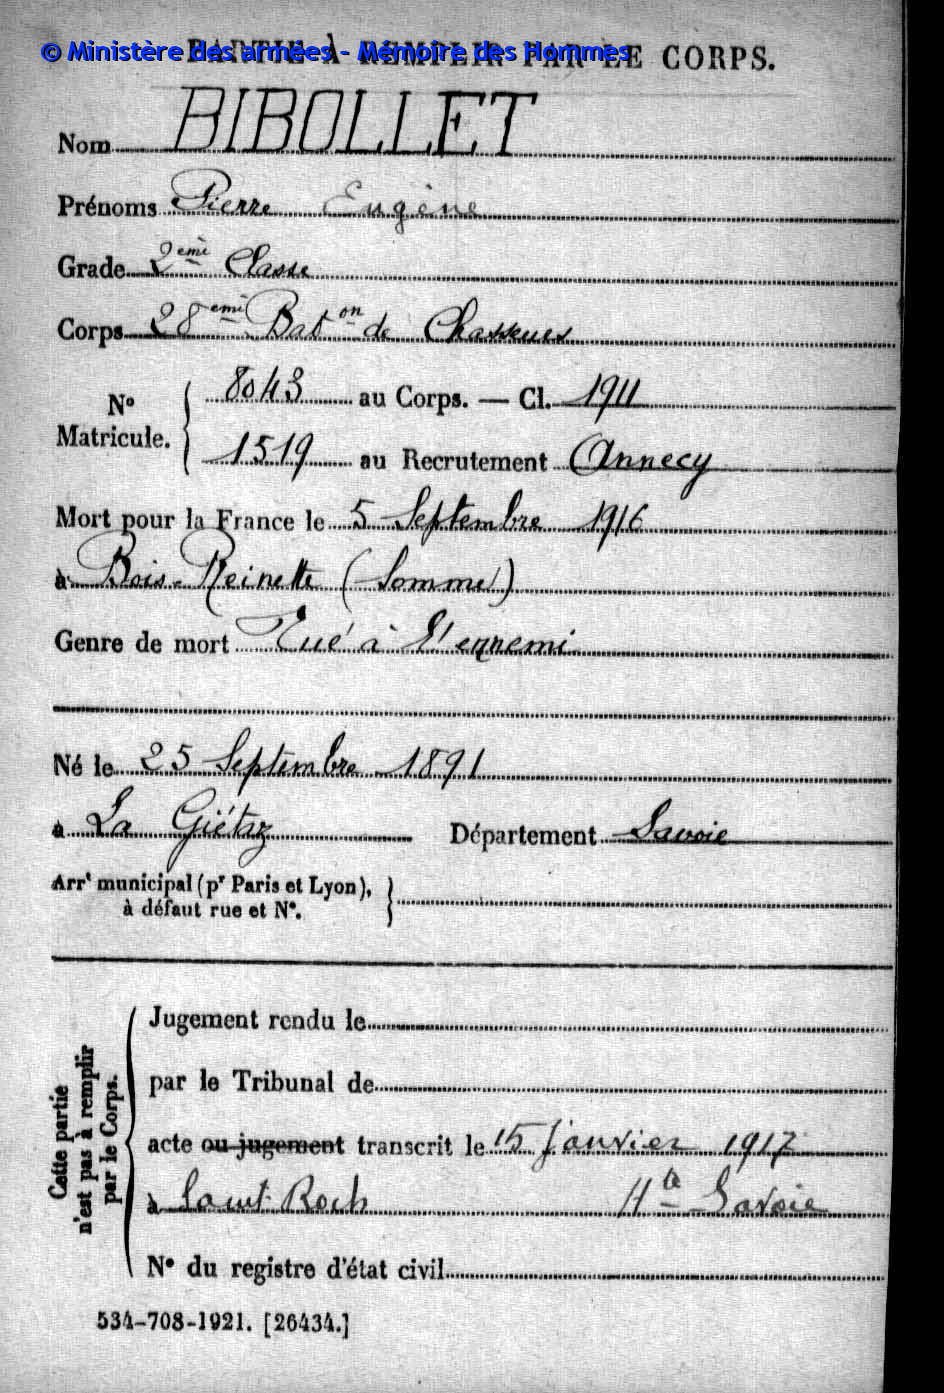 © Ministère des armées - Mémoire des Hommes
PARTIE À REMPLIR PAR LE CORPS.
Nom BIBOLLET
Prénoms Pierre Eugène
Grade 2eme Classe
Corps 28eme Baton de Chasseurs
No Matricule. { 8043 au Corps. — Cl. 1911
1519 au Recrutement Annecy
Mort pour la France le 5 Septembre 1916
à Bois-Reinette (Somme)
Genre de mort Tué à l'ennemi
Né le 25 Septembre 1891
à La Giétaz Département Savoie
Arrt municipal (pr Paris et Lyon), à défaut rue et No. }
Cette partie n'est pas à remplir par le Corps.
Jugement rendu le
par le Tribunal de
acte ou jugement transcrit le 15 janvier 1917
à Saint Roch Hte Savoie
No du registre d'état civil
534-708-1921. [26434.]